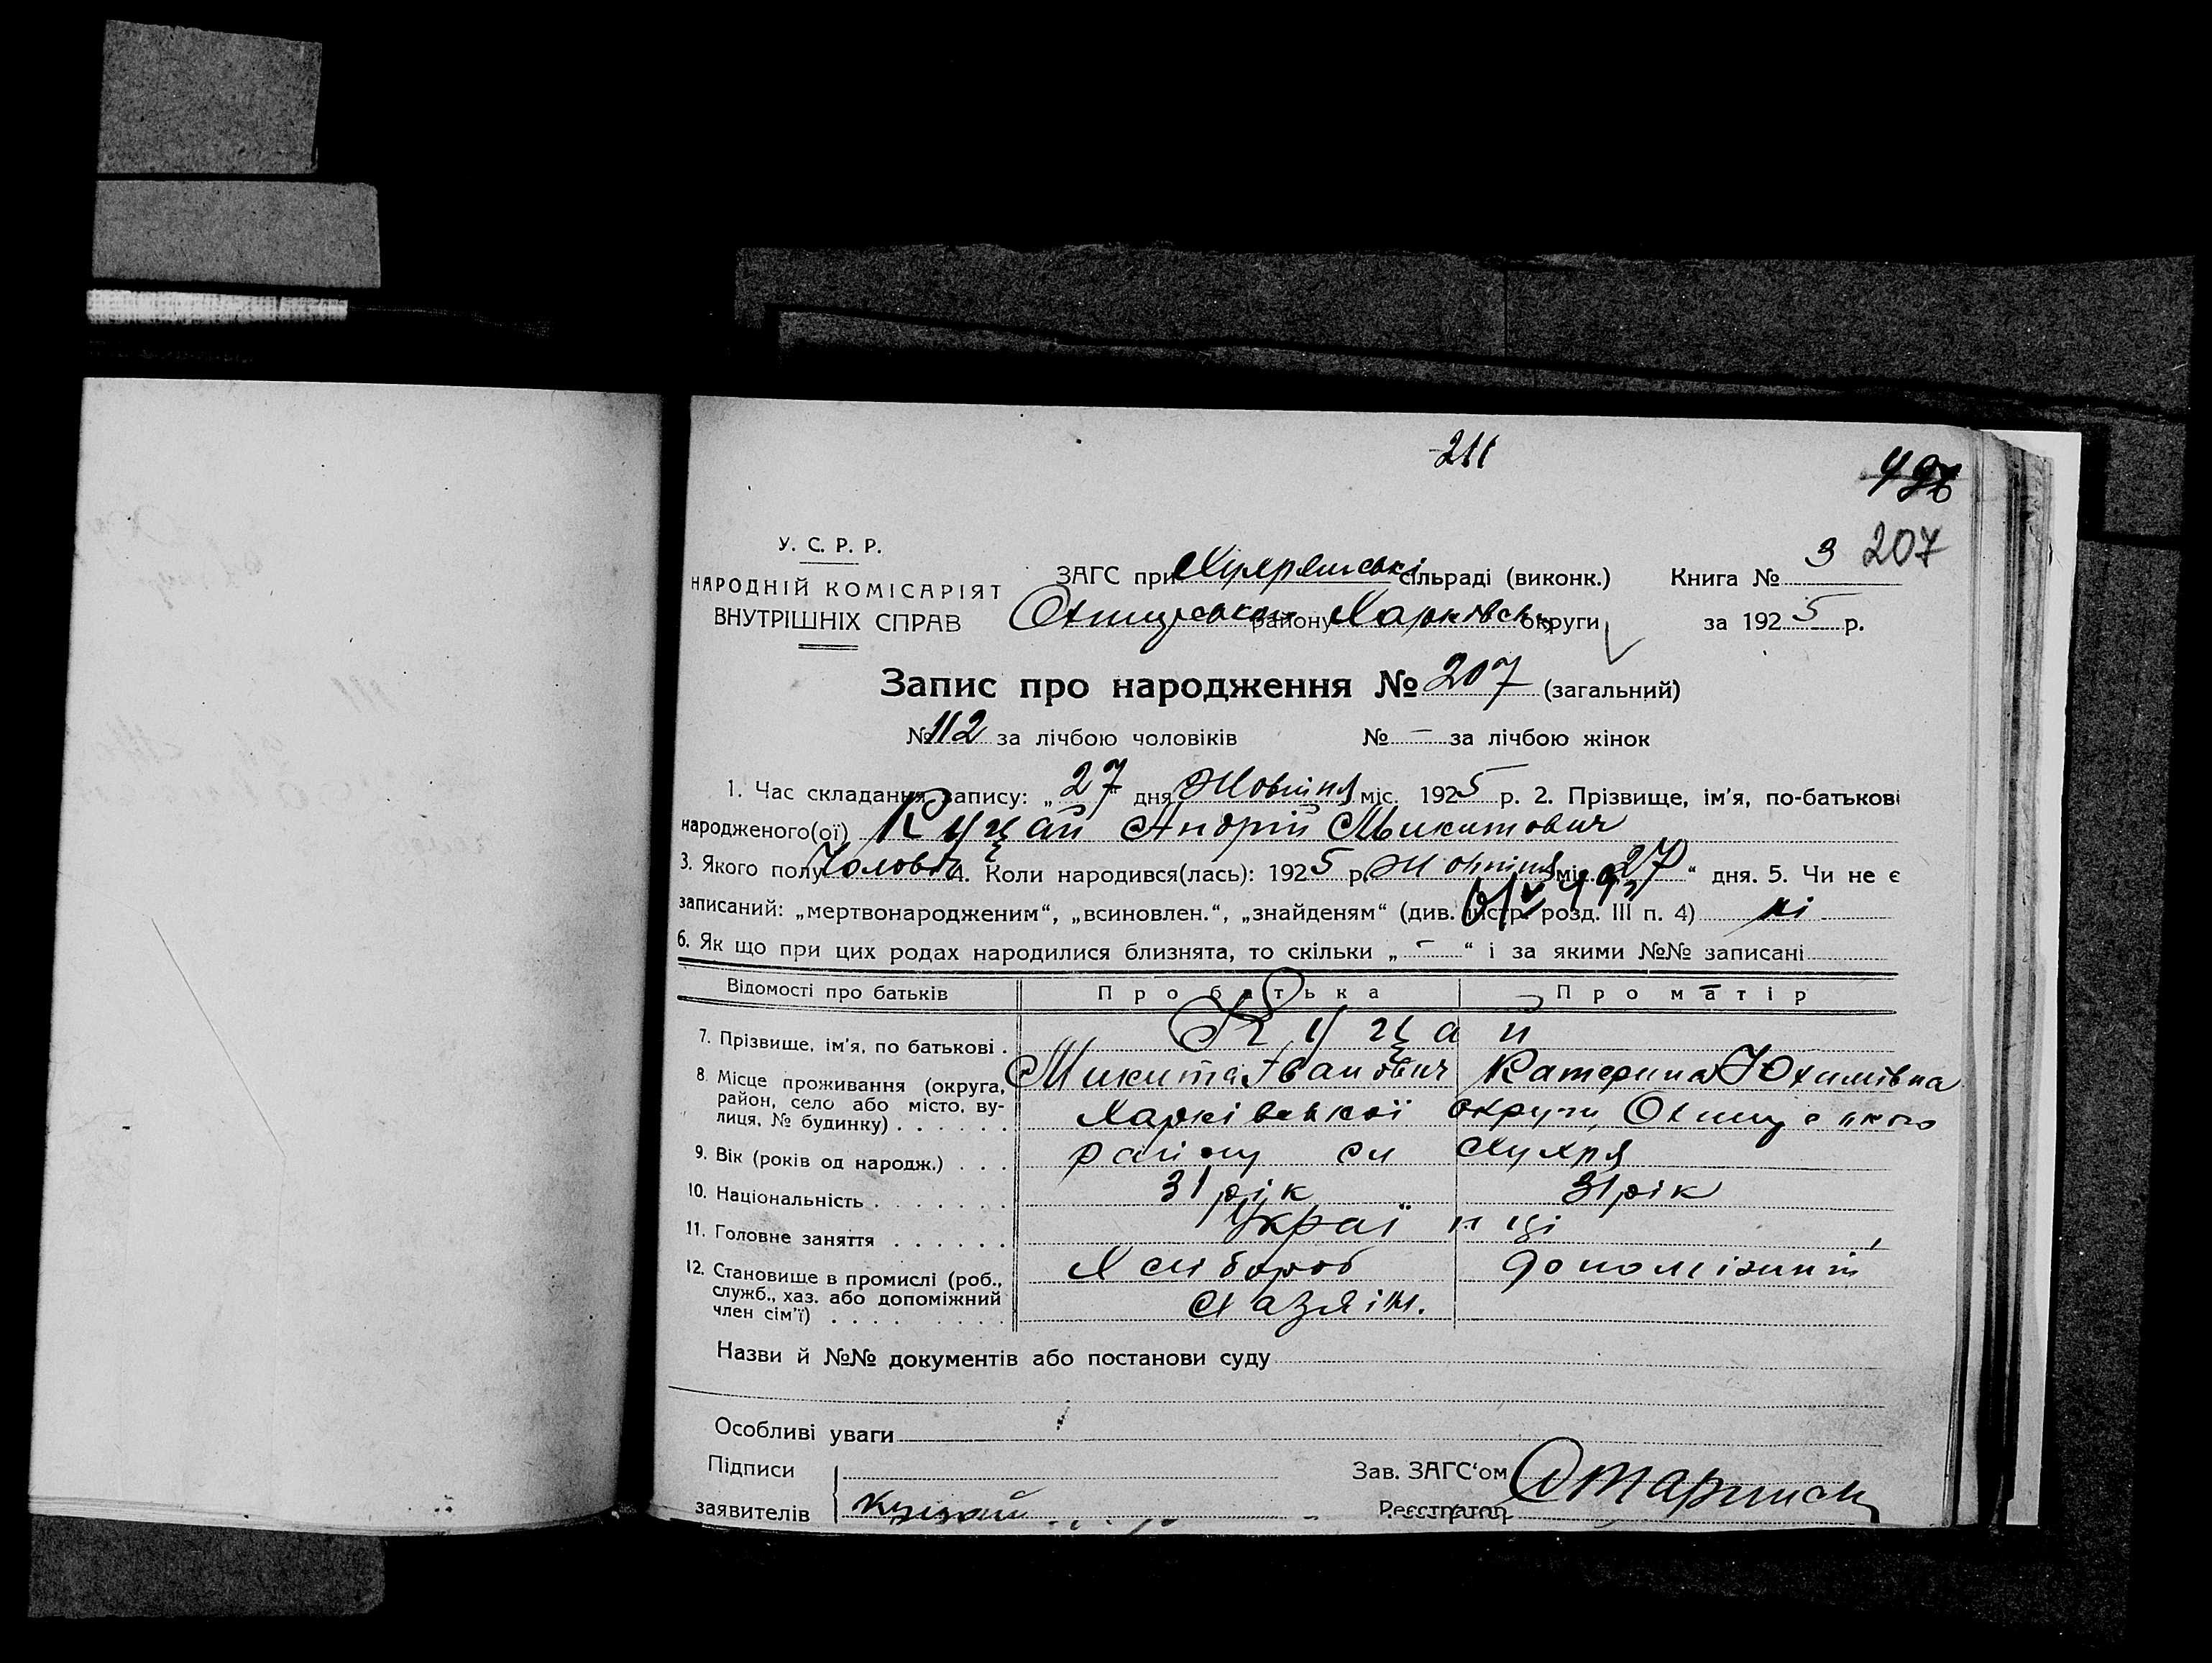 211
498
207
У. С. Р. Р.
НАРОДНІЙ КОМІСАРІЯТ
ВНУТРІШНІХ СПРАВ
ЗАГС при Хухрянські сільраді (виконк.) Книга № 3
Охтирськом району Харківськ округи за 1925 р.
Запис про народження № 207 (загальний)
№ 112 за лічбою чоловіків № - за лічбою жінок
1. Час складання запису: „27" дня Жовтня міс. 1925 р. 2. Прізвище, ім'я, по-батькові
народженого(ої) Куцай Андрій Микитович
3. Якого полу Чолов 4. Коли народився(лась): 1925 р. Жовтня міс. 27 “ дня. 5. Чи не є
записаний: „мертвонародженим“, „всиновлен.“, „знайденям“ (див. інстр. розд. III п. 4) ні
6. Як що при цих родах народилися близнята, то скільки „ - “ і за якими №№ записані
Відомості про батьків Про батька Про матір
7. Прізвище, ім'я, по батькові . Куцай
Микита Іванович Катерина Юхимівна
8. Місце проживання (округа,
район, село або місто, ву-
лиця, № будинку) . . . . . . Харківської округи, Охтирського
району сл Хухря
9. Вік (років од народж.) . . . 31 рік 31 рік
10. Національність . . . . . . . Українці
11. Головне заняття . . . . . . Хлібороб допоміжний
12. Становище в промислі (роб.,
служб., хаз. або допоміжний
член сім'ї) . . . . . . . . . Хазяїн.
Назви й №№ документів або постанови суду
Особливі уваги
Підписи
заявителів Куцай
Зав. ЗАГС‘ом
Реєстратор